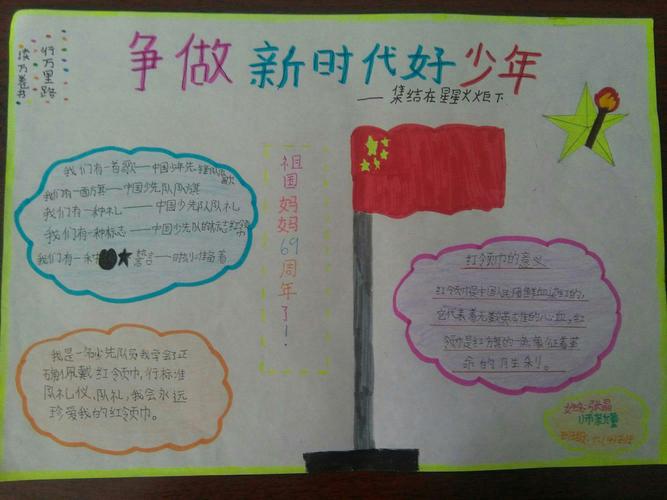 争做新时代好少年
——集结在星星火炬下
行万里路
读万卷书
我们有一首歌——中国少年先锋队队歌
我们有一面旗——中国少先队队旗
我们有一种礼——中国少先队队礼
我们有一种标志——中国少先队的标志红领巾
我们有一种
誓言——时刻准备着
祖国妈妈69周年了!
红领巾的意义
红领巾是中国人民用鲜血染红的,
它代表着无数英雄的心血,红
领巾是红方旗的一角,象征着革
命的胜利。
我是一名少先队员我学会了正
确佩戴红领巾,行标准
队礼仪、队礼,我会永远
珍爱我的红领巾。
姓名:张晶